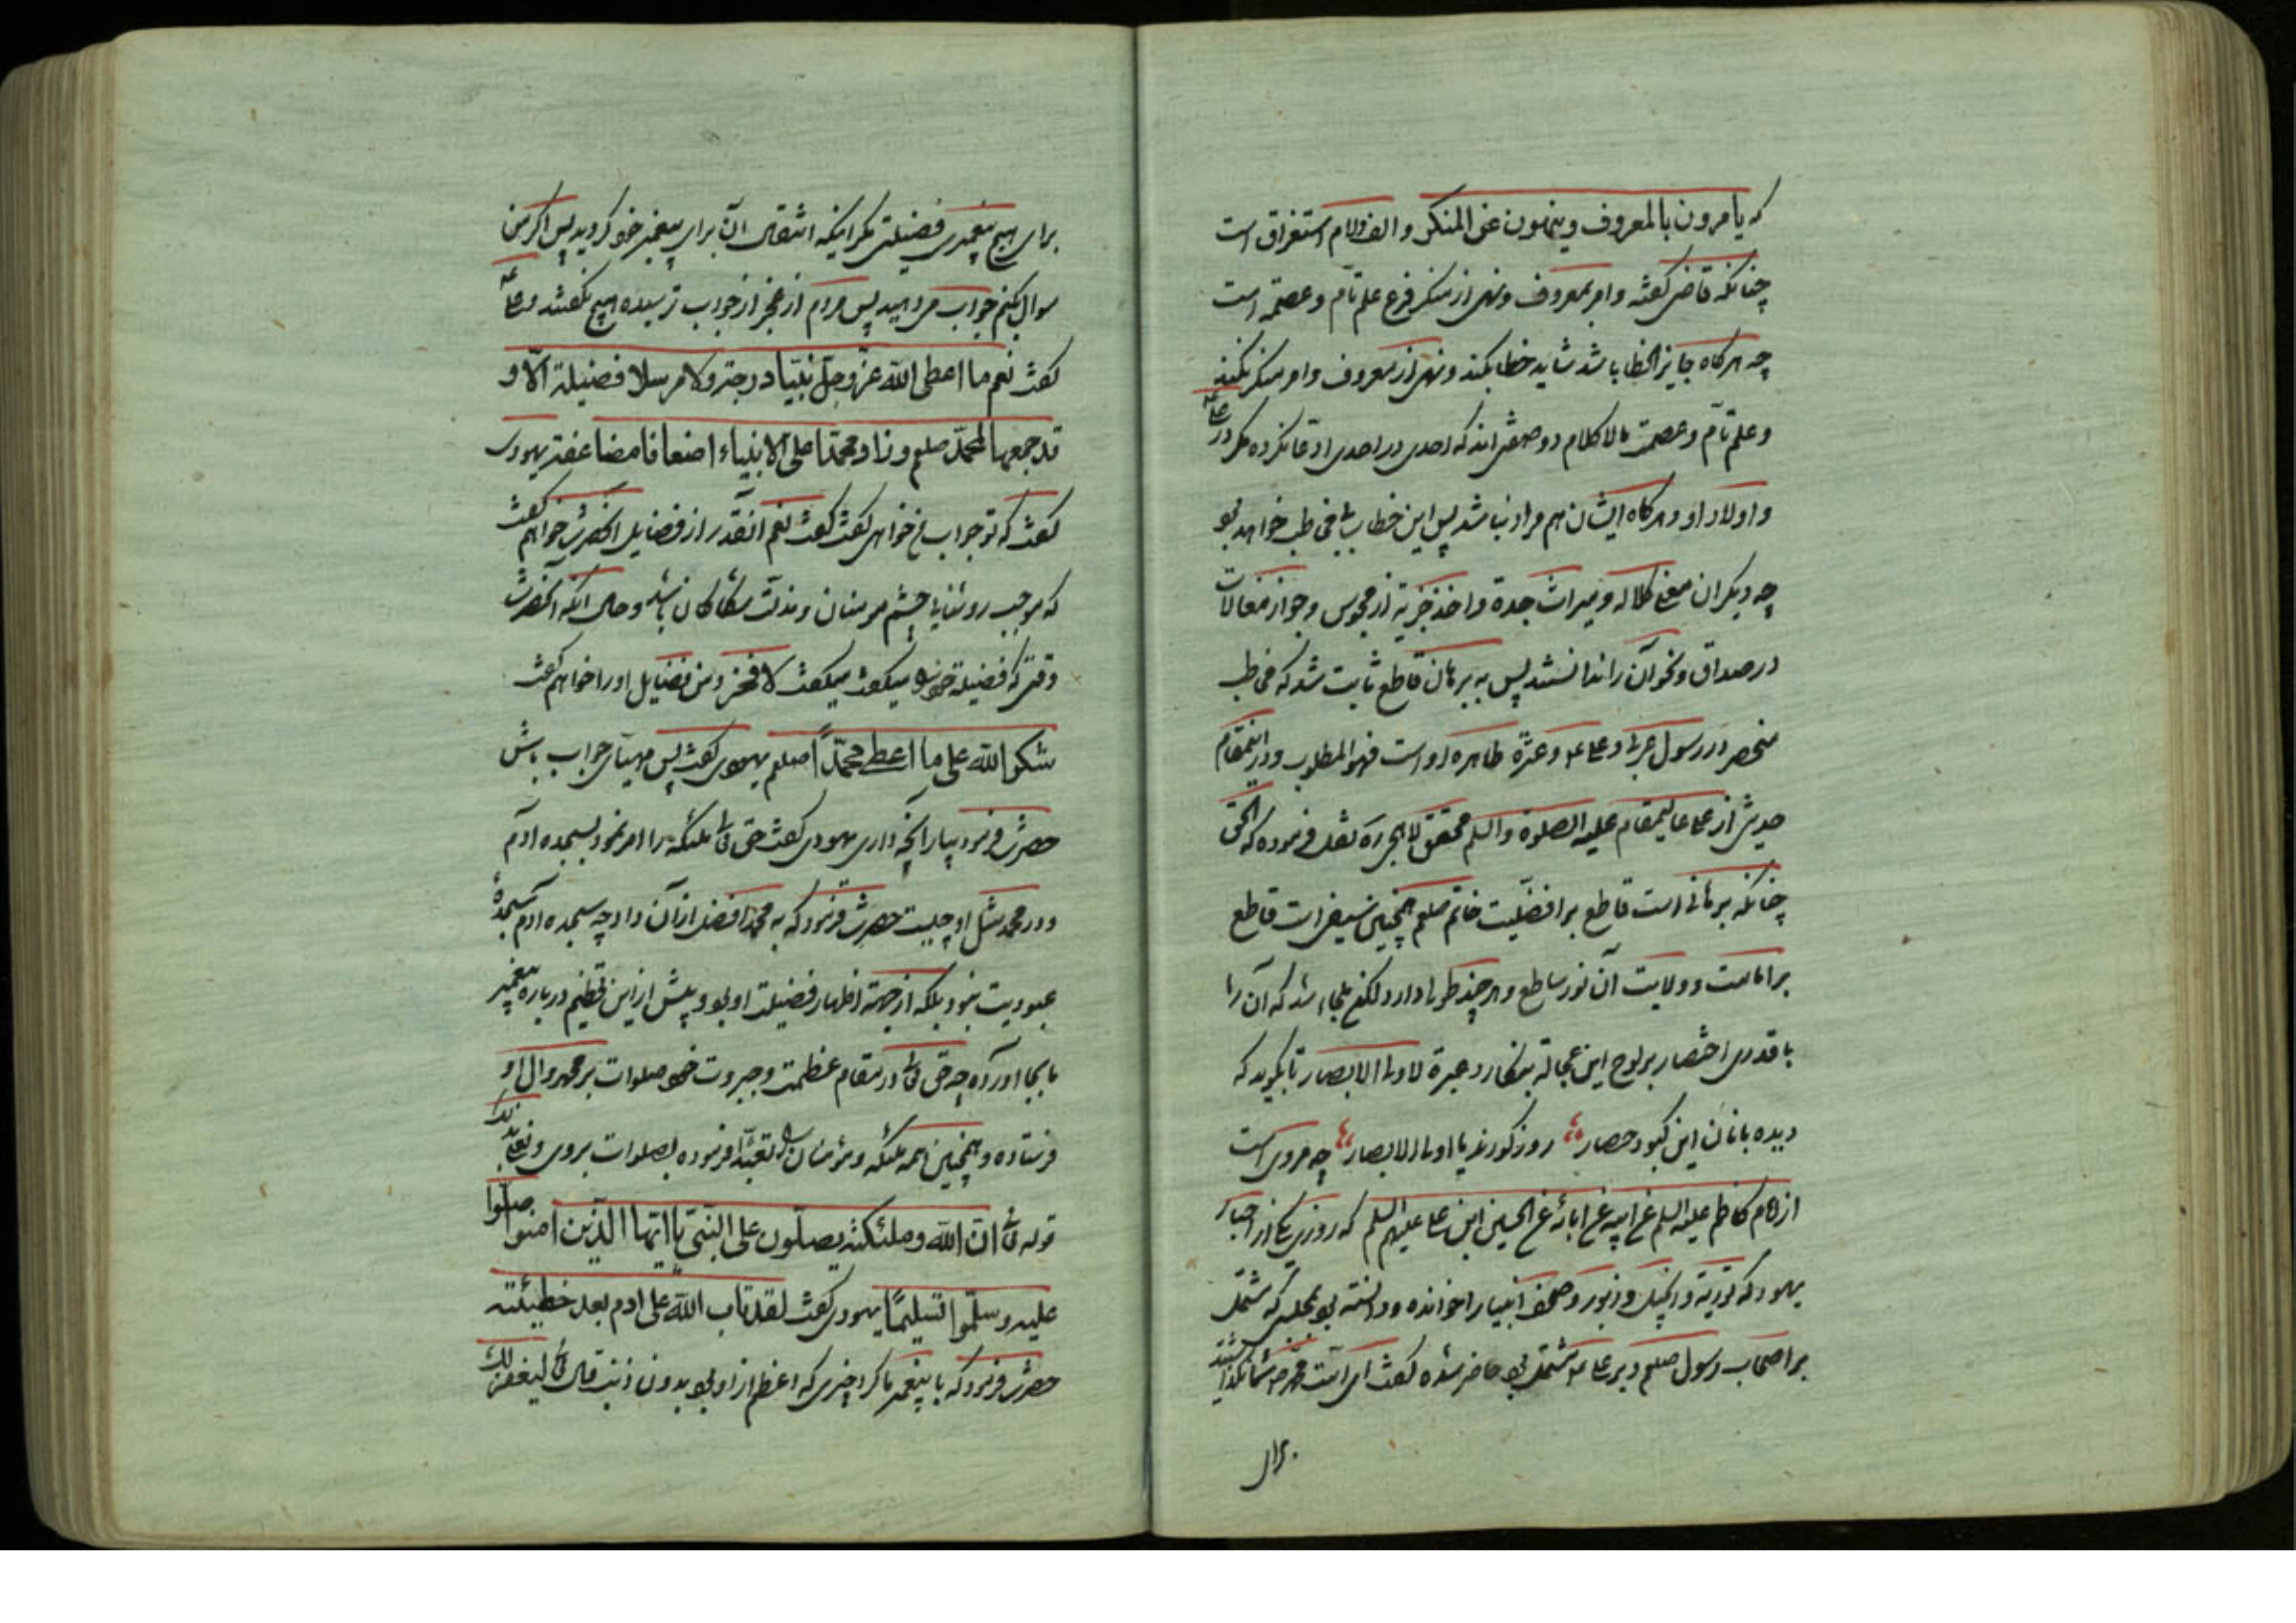 که یامرون بالمعروف وینهون عن المنکر و الف ولام استغراق است
چنانکه قاضی کفته وامر بمعروف ونهی از منکر فرع علم تام وعصمة است
چه هرکاه جایز الخطا باشد شاید خطا بکند ونهی از معروف وامر بمنکر بکند
وعلم تام وعصمت بالا کلام دو صفتی اند که احدی در احدی ادعا نکرده مکر در علی
واولاد او وهرکاه ایشان هم مراد نباشد پس این خطاب بی مخاطب خواهد بو
چه دیکران معنی کلاله و میراث جده واخذ جزیة از مجوس وجواز مغالات
در صداق ونحو آن را ندانستند پس به برهان قاطع ثابت شد که مخاطب
منحصر در رسول عربی وعلی وعترة طاهره او است فهو المطلوب ودر اینمقام
حدیثی از علی عالیمقام علیه الصلوة والسلم محقق لاهیجی ره نقل فرموده که الحق
چنانکه برهانی است قاطع بر افضلیت خاتم صلعم همچنین سیفی است قاطع
بر امامت وولایت آن نور ساطع وهر چند طولی دارد لکن ملجاء شد که آن را
با قدری اختصار بر لوح این عجالة بنکارد عبرة لاولی الابصار تا بکوید که
دیده بانان این کبود حصار ،، روز کورند یا اولی الابصار ،، چه مروی است
از امام کاظم علیه السلم عن ابیه عن ابائه عن الحسین ابن علی علیهم السلم که روزی یکی از احبار
یهود که توریة و انجیل و زبور و صحف انبیا را خوانده ودانسته بو بمجلسی که مشتمل
بر اصحاب رسول صلعم وبر علی مشتمل بو حاضر شده کفت ای امت محمد شما نکذاشتید
برای
برای هیچ پیغمبری فضیلتی مکر اینکه اثبتم آن برای پیغمبر خو کردید پس اکر من
سوال بکنم جواب میدهید پس مردم از عجز از جواب ترسیده هیچ نکفتند وعلی
کفت نعم ما اعطی الله عز وجل نبیا درجة ولا مرسلا فضیلة الا و
قد جمعها لمحمد صلعم وزاد محمدا علی الانبیاء اضعافا مضاعفة یهودی
کفت که تو جواب خواهی کفت کفت نعم انقدر از فضایل انحضرت خواهم کفت
که موجب روشنایی چشم مومنان ومذلت شکاکان باشد وحال انکه آنحضرت
وقتی که فضیلة خو را میکفت میکفت لا فخر ومن فضایل او را خواهم کفت
شکر الله علی ما اعطی محمدا صلعم یهودی کفت پس مهیای جواب باش
حضرت فرمود بیار آنچه داری یهودی کفت حق تعالی ملئکه را امر نمود بسجده ادم
ودر محمد مثل او چیست حضرت فرمود که به محمد افضل از آن داد چه سجده ادم سجدهٔ
عبودیت نبود بلکه از جهة اظهار فضیلت او بو وبیش از این تعظیم درباره پیغمبر
ما بجا آورده چه حق تعالی در مقام عظمت وجبروت خو صلوات بر محمد وال او
فرستاده وهمچنین همه ملئکه ومؤمنان را تعبدا فرموده بصلوات بر وی
قوله تعالی ان الله وملئکته یصلون علی النبی یا ایها الذین امنوا صلوا
علیه وسلموا تسلیما یهودی کفت لقد تاب الله علی ادم بعد خطیئته
حضرت فرمود که با پیغمبر ما کرد چیزی که اعظم از او بو بدون ذنب قال تعالی لیغفر لک